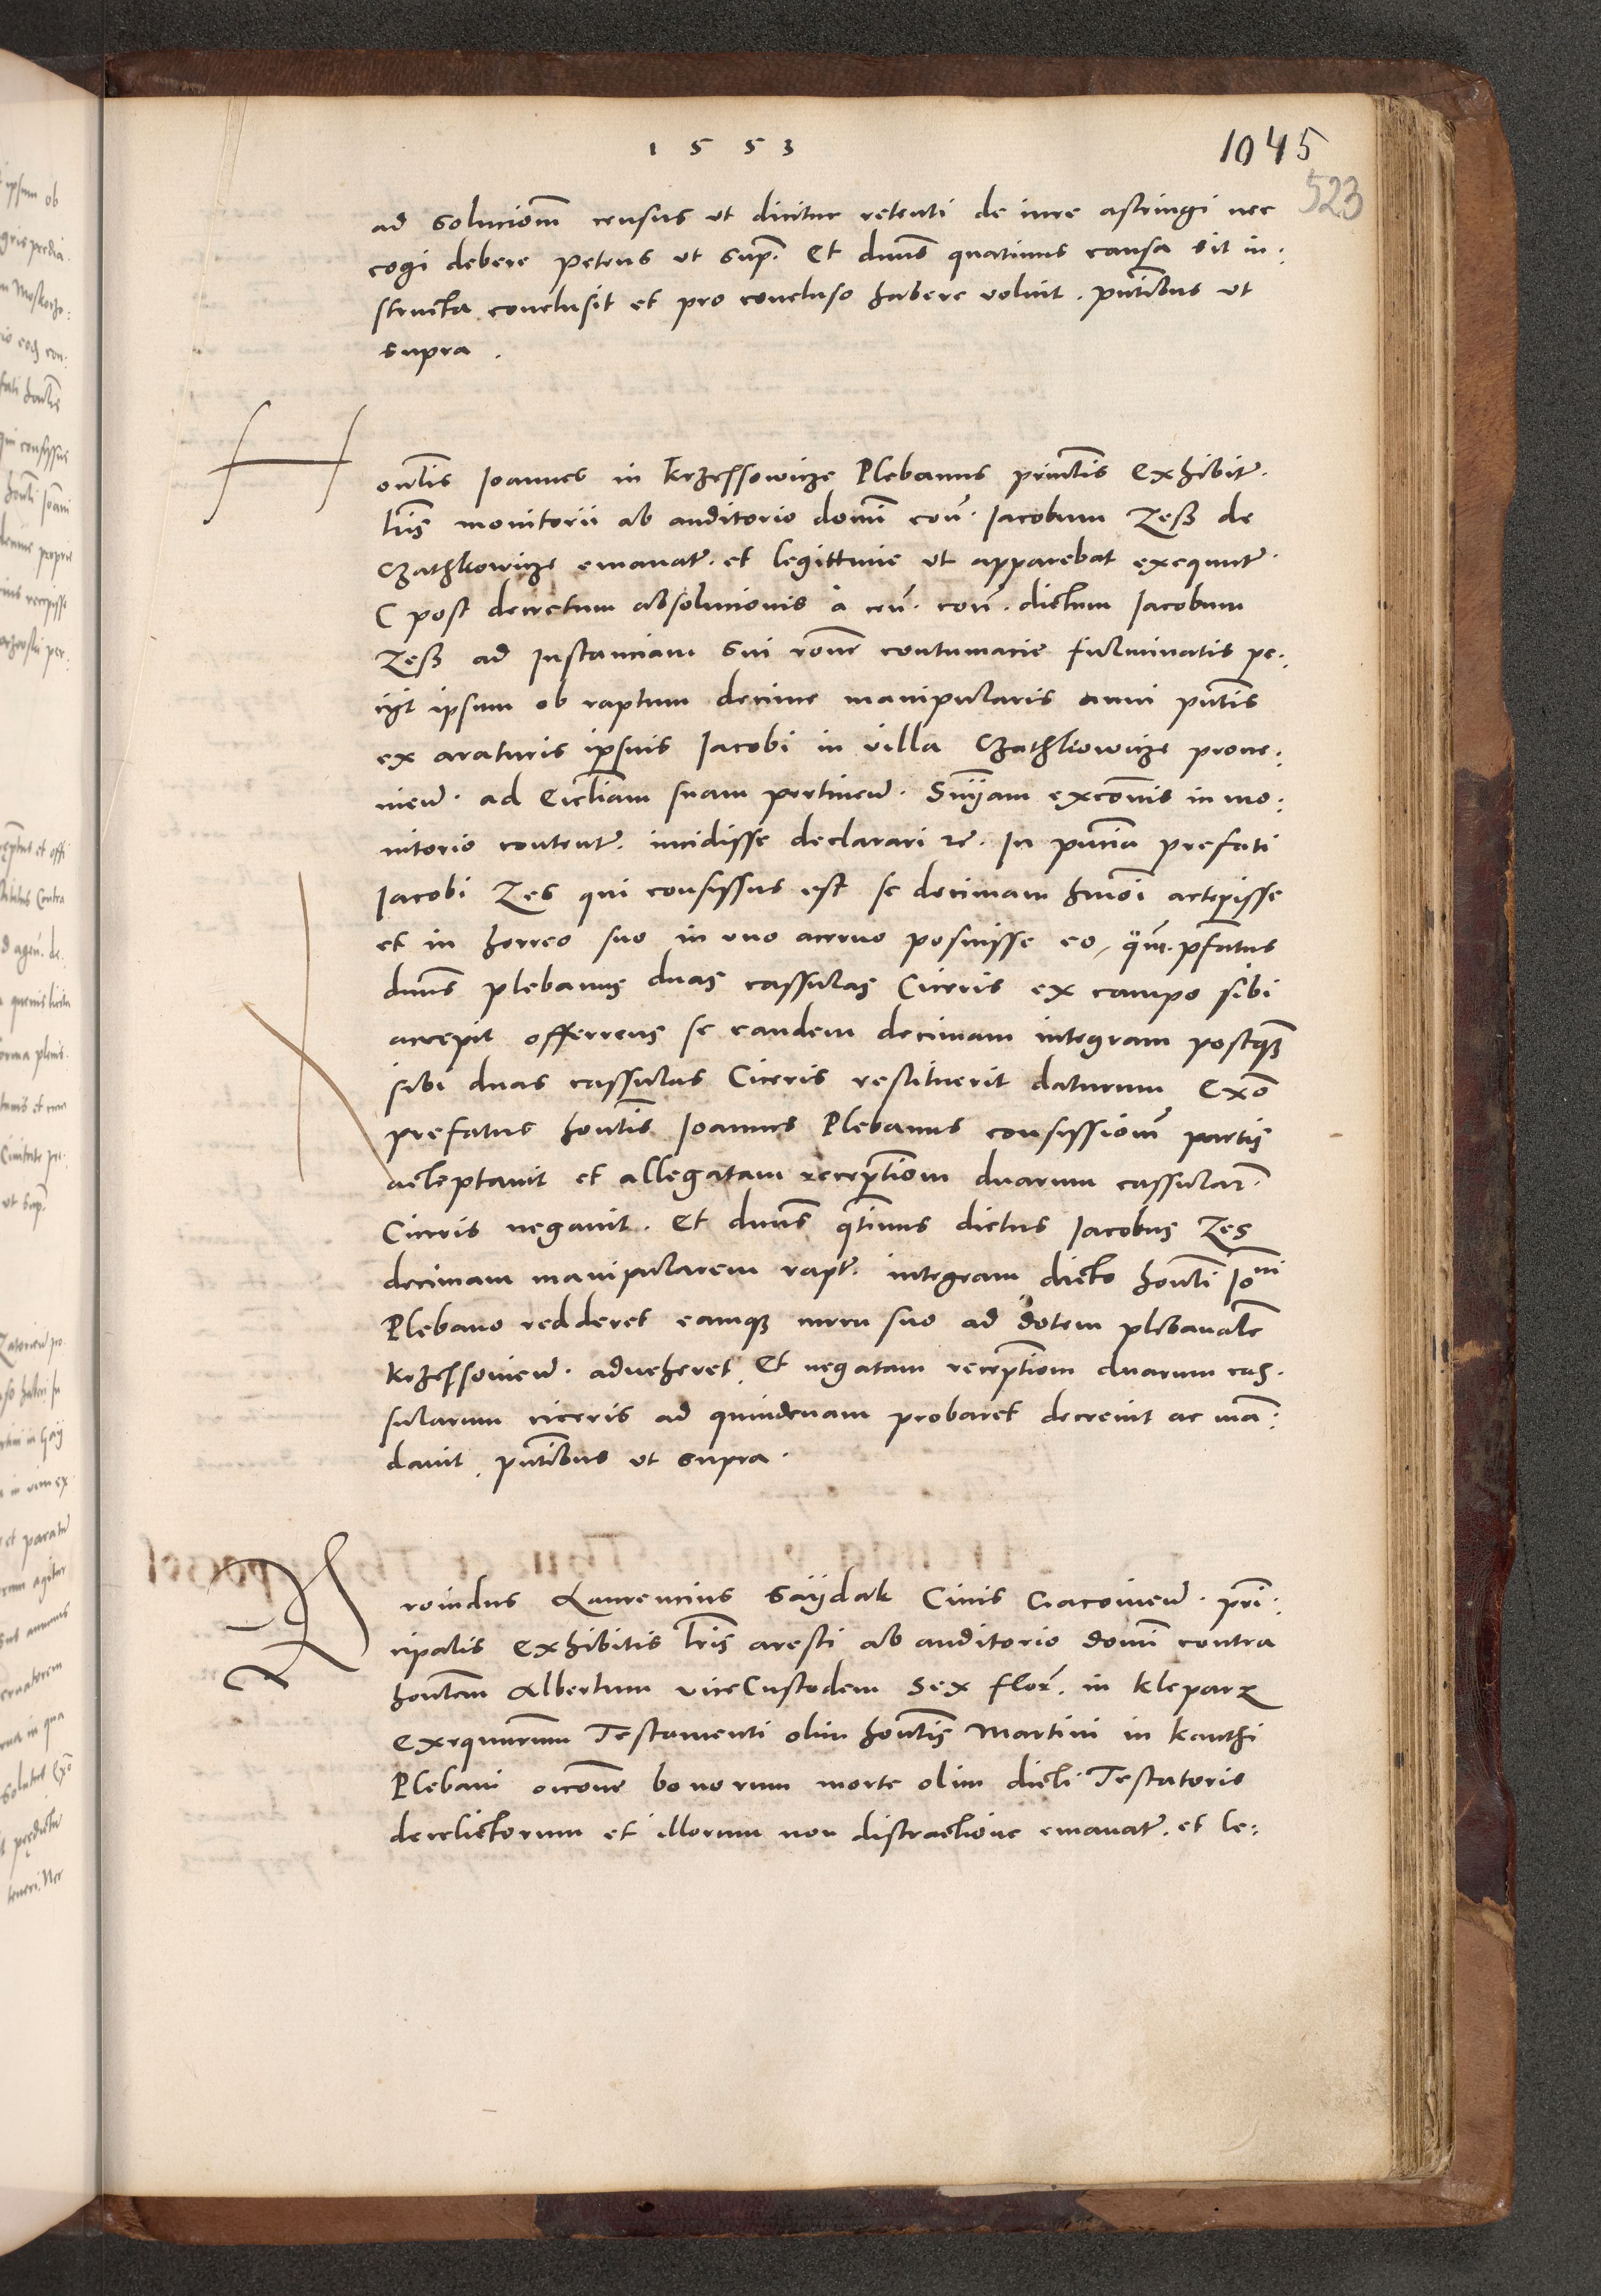 1553
1045
523
ad solucionem census ut dicitur retenti de iure astringi nec
cogi debere petens ut sup. Et dnus quatinus causa sit in:
structa conclusit et pro concluso habere voluit. pntibus ut
supra.
Honlis Ioannes in Krzessowicze Plebanus principalis Exhibitr.
lris monitorii ab auditorio domi con. Iacobum Zess de
Czathkowicze emanatr. et legittime ut apparebat exequutr.
C post decretum absolucionis a cen. con. dictum Iacobum
Zess ad Instanciam sui rone contumacie fulminatis pe:
cijt ipsum ob raptum decime manipularis anni pntis
ex araturis ipsius Iacobi in villa Czathkowicze prove:
nien. ad Eccliam suam pertinen. Sniam exconis in mo:
nitorio contentr. incidisse declarari etc. In pncia prefati
Iacobi Zes qui confessus est se decimam hmoi accepisse
et in horreo suo in uno acervo posuisse eo, qm. pfatus
dnus plebanus duas cassulas Ciceris ex campo sibi
accepit offerens se eandem decimam integram postq
sibi duas cassulas Ciceris restituerit daturum Exo
prefatus honlis Ioannes Plebanus confessionem partis
acceptavit et allegatam receptiom duarum cassular.
Ciceris negavit. Et dnus qtinus dictus Iacobus Zes
decimam manipularem raptr. integram dicto honli Ioni
Plebano redderet eamq curru suo ad dotem plebanale
Krzessovien. adveheret, Et negatam receptiom duarum cas.
sularum ciceris ad quindenam probaret decrevit ac man:
davit, pntibus ut supra.
Providus Laurencius Saijdak Civis Cracovien. prin:
cipalis Exhibitis lris aresti ab auditorio domi contra
honlem Albertum viceCustodem S. Flor. in Klepar
Exequutorem Testamenti olim honlis Martini in Kanthi
Plebani occone bonorum morte olim dicti Testatoris
derelictorum et illorum non distractione emanatr. et le: